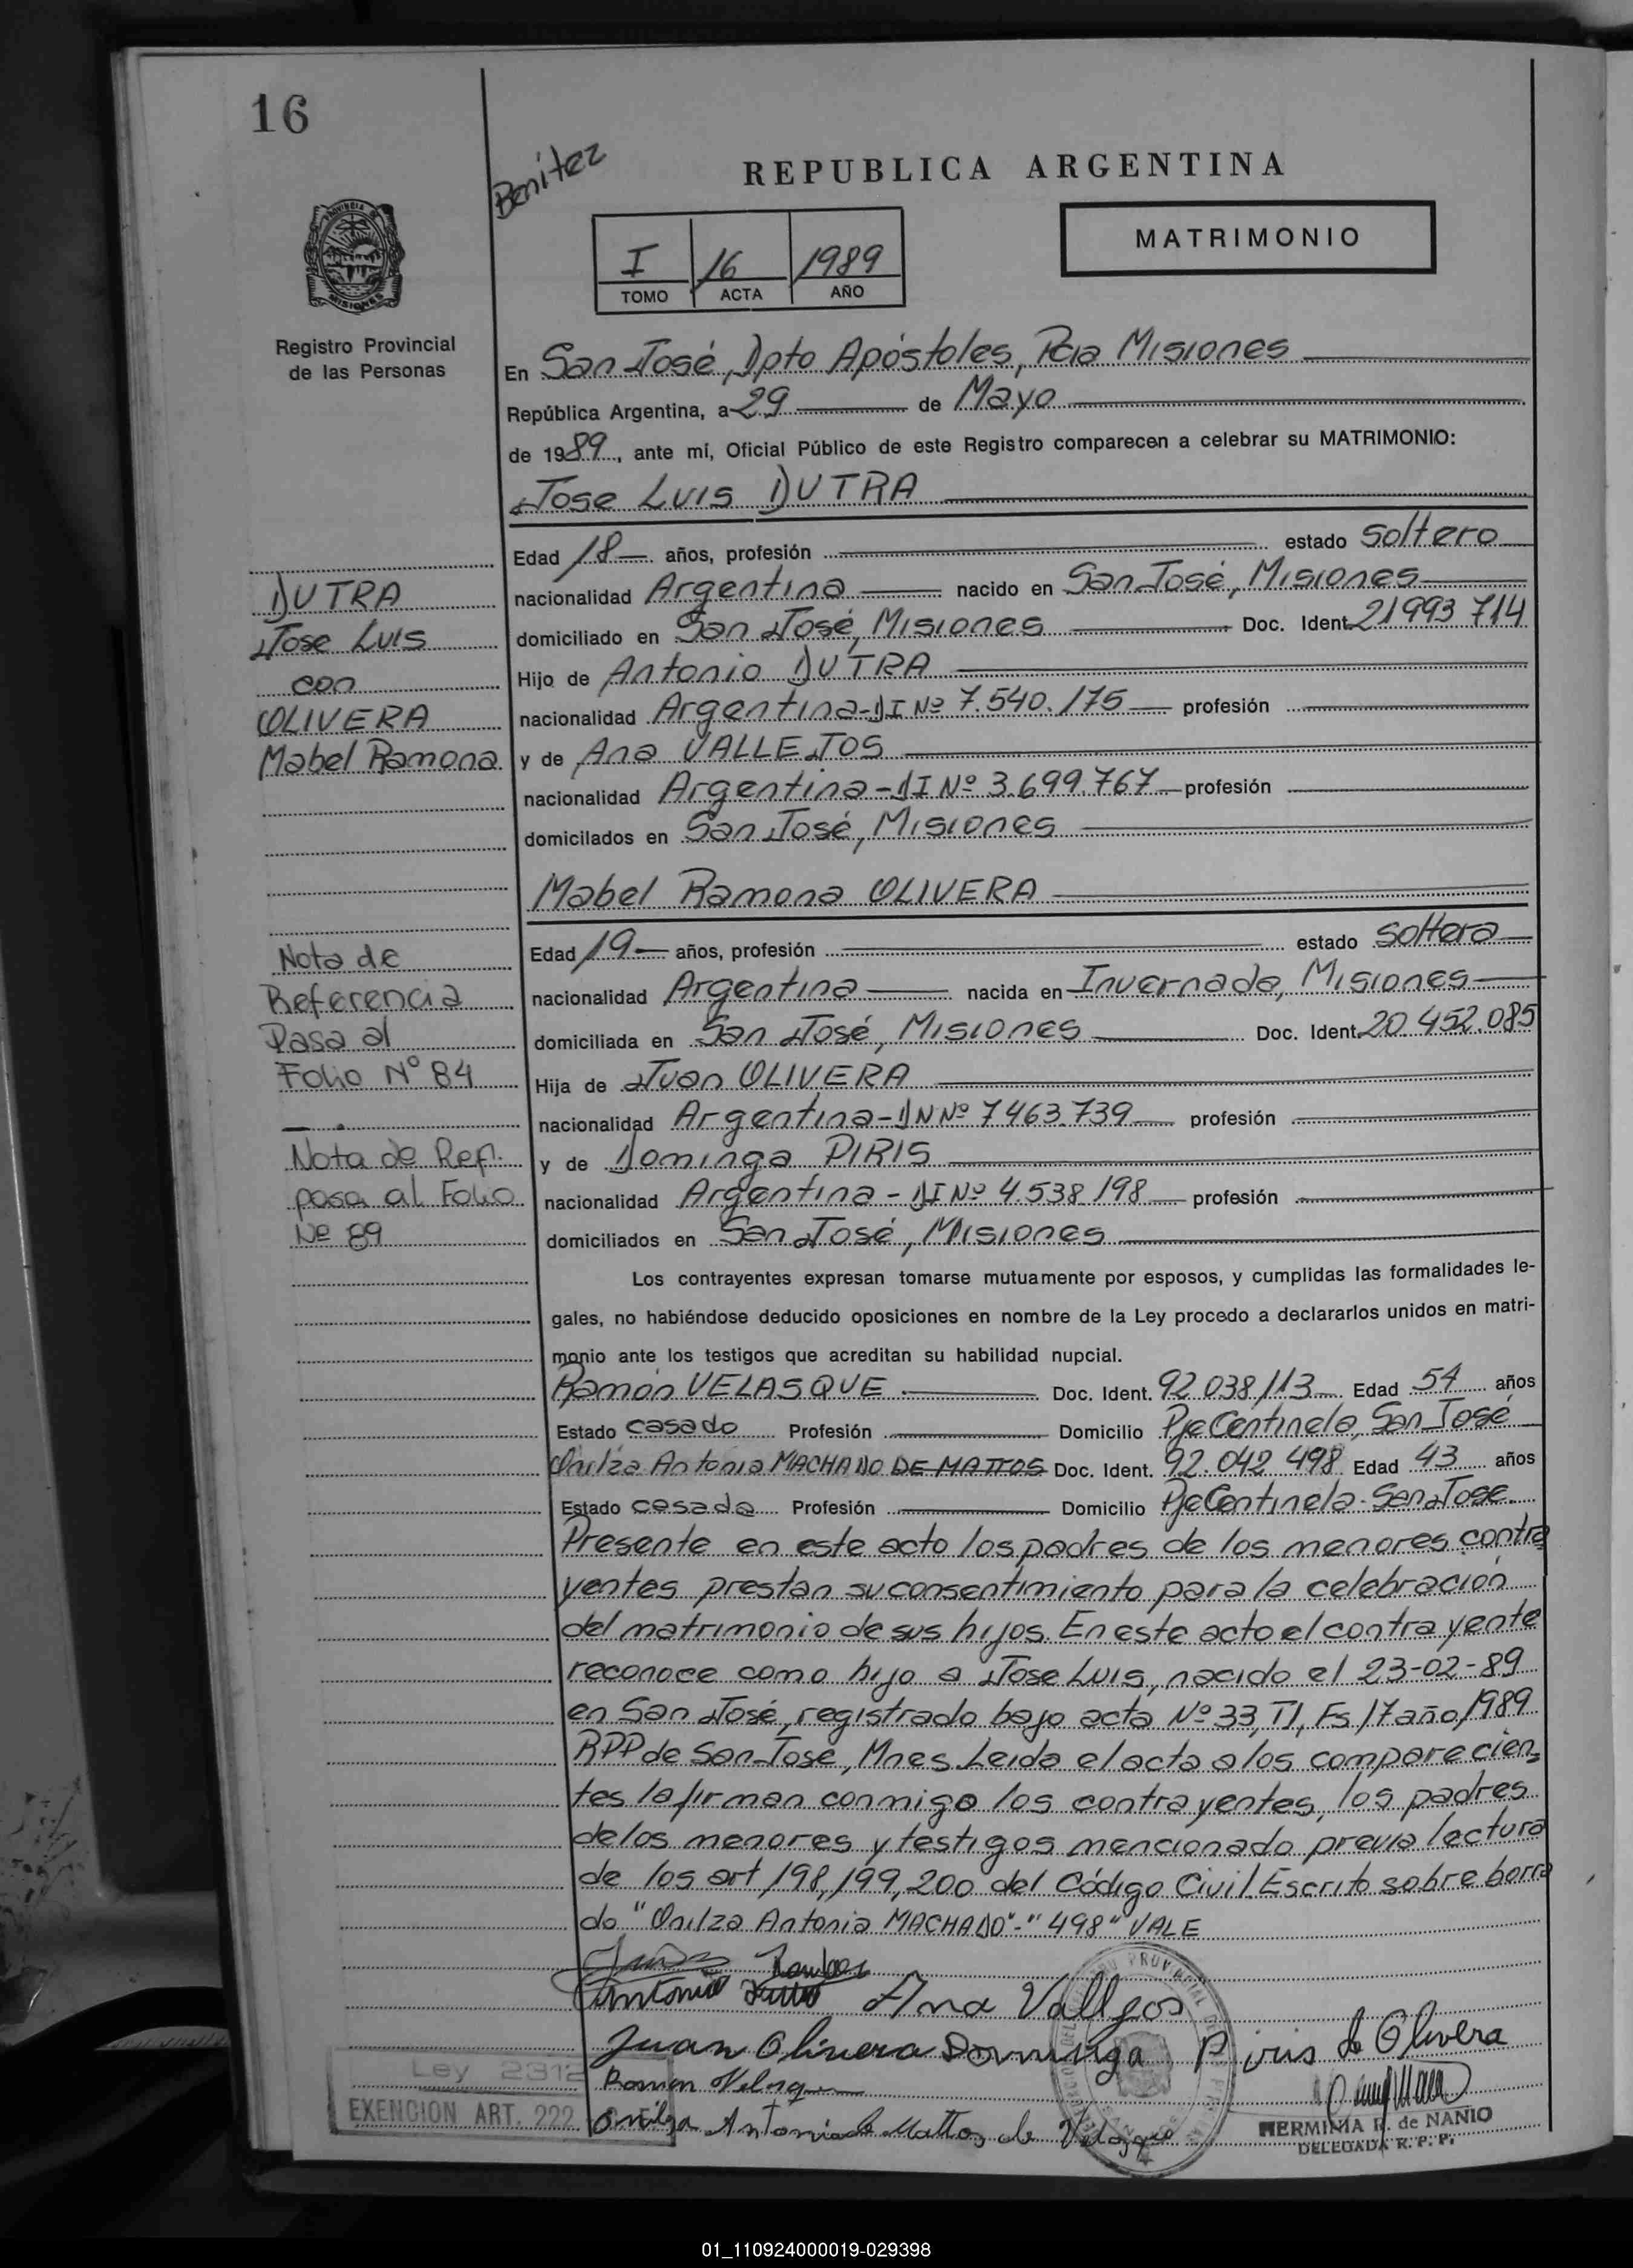 16
Benítez
REPUBLICA ARGENTINA
MATRIMONIO
I 16 1989
TOMO ACTA AÑO
PROVINCIA DE MISIONES
Registro Provincial
de las Personas
En San José, Dpto Apóstoles, Pcia Misiones
República Argentina, a 29 de Mayo
de 1989, ante mí, Oficial Público de este Registro comparecen a celebrar su MATRIMONIO:
Jose Luis DUTRA
Edad 18 años, profesión estado soltero
nacionalidad Argentina nacido en San José, Misiones
domiciliado en San José, Misiones Doc. Ident. 21993 714
Hijo de Antonio DUTRA
nacionalidad Argentina-DI Nº 7.540.175 profesión
y de Ana VALLEJOS
nacionalidad Argentina-DI Nº 3.699.767 profesión
domicilados en San José, Misiones
DUTRA
Jose Luis
con
OLIVERA
Mabel Ramona
Mabel Ramona OLIVERA
Edad 19 años, profesión estado soltera
nacionalidad Argentina nacida en Invernada, Misiones
domiciliada en San José, Misiones Doc. Ident. 20.452.085
Hija de Juan OLIVERA
nacionalidad Argentina-DNNº 7463.739 profesión
y de Dominga PIRIS
nacionalidad Argentina-DI Nº 4.538.198 profesión
domiciliados en San José, Misiones
Nota de
Referencia
Pasa al
Folio Nº 84
Nota de Ref.
pasa al Folio
Nº 89
Los contrayentes expresan tomarse mutuamente por esposos, y cumplidas las formalidades le-
gales, no habiéndose deducido oposiciones en nombre de la Ley procedo a declararlos unidos en matri-
monio ante los testigos que acreditan su habilidad nupcial.
Ramón VELASQUE Doc. Ident. 92.038.113 Edad 54 años
Estado casado Profesión Domicilio Pje Centinela, San José
Onilza Antonia MACHADO DE MATTOS Doc. Ident. 92.042.498 Edad 43 años
Estado casada Profesión Domicilio Pje Centinela-San Jose
Presente en este acto los padres de los menores contra
yentes prestan su consentimiento para la celebración
del matrimonio de sus hijos. En este acto el contrayente
reconoce como hijo a Jose Luis, nacido el 23-02-89
en San José, registrado bajo acta Nº 33, TI, Fs 17 año 1989
RPP de San Jose, Mnes. Leida el acta a los comparecien
tes la firman conmigo los contrayentes, los padres
de los menores y testigos mencionado previa lectura
de los art 198, 199, 200 del Código Civil. Escrito sobre borra
do "Onilza Antonia MACHADO"-"498" VALE
Antonio Dutra Ana Vallejos
Juan Olivera Dominga Piris de Olivera
Ramon Velasque
Onilza Antonia de Mattos de Velasque
Ley 2312
EXENCION ART. 222
HERMINIA R. de NANIO
DELEGADA R. P. P.
01_110924000019-029398